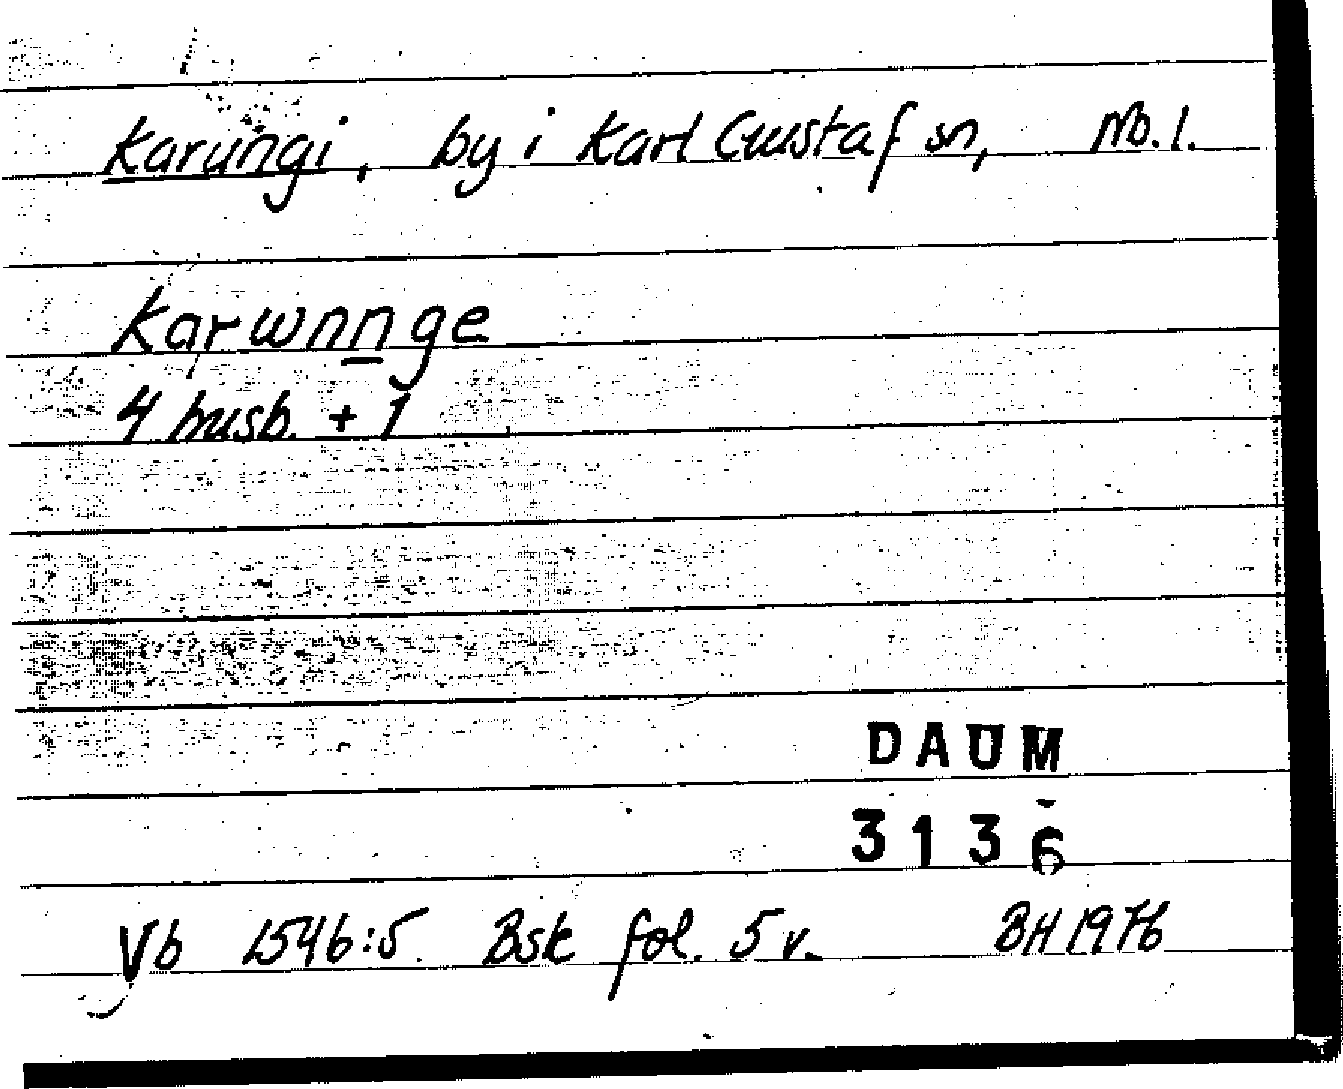 Karungi, by i Karl Gustaf sn, Nb.l.
Karwnnge
4 husb. + 1
DAUM
3136
Vb 1546:5. Bsk fol. 5 v. BH 1976